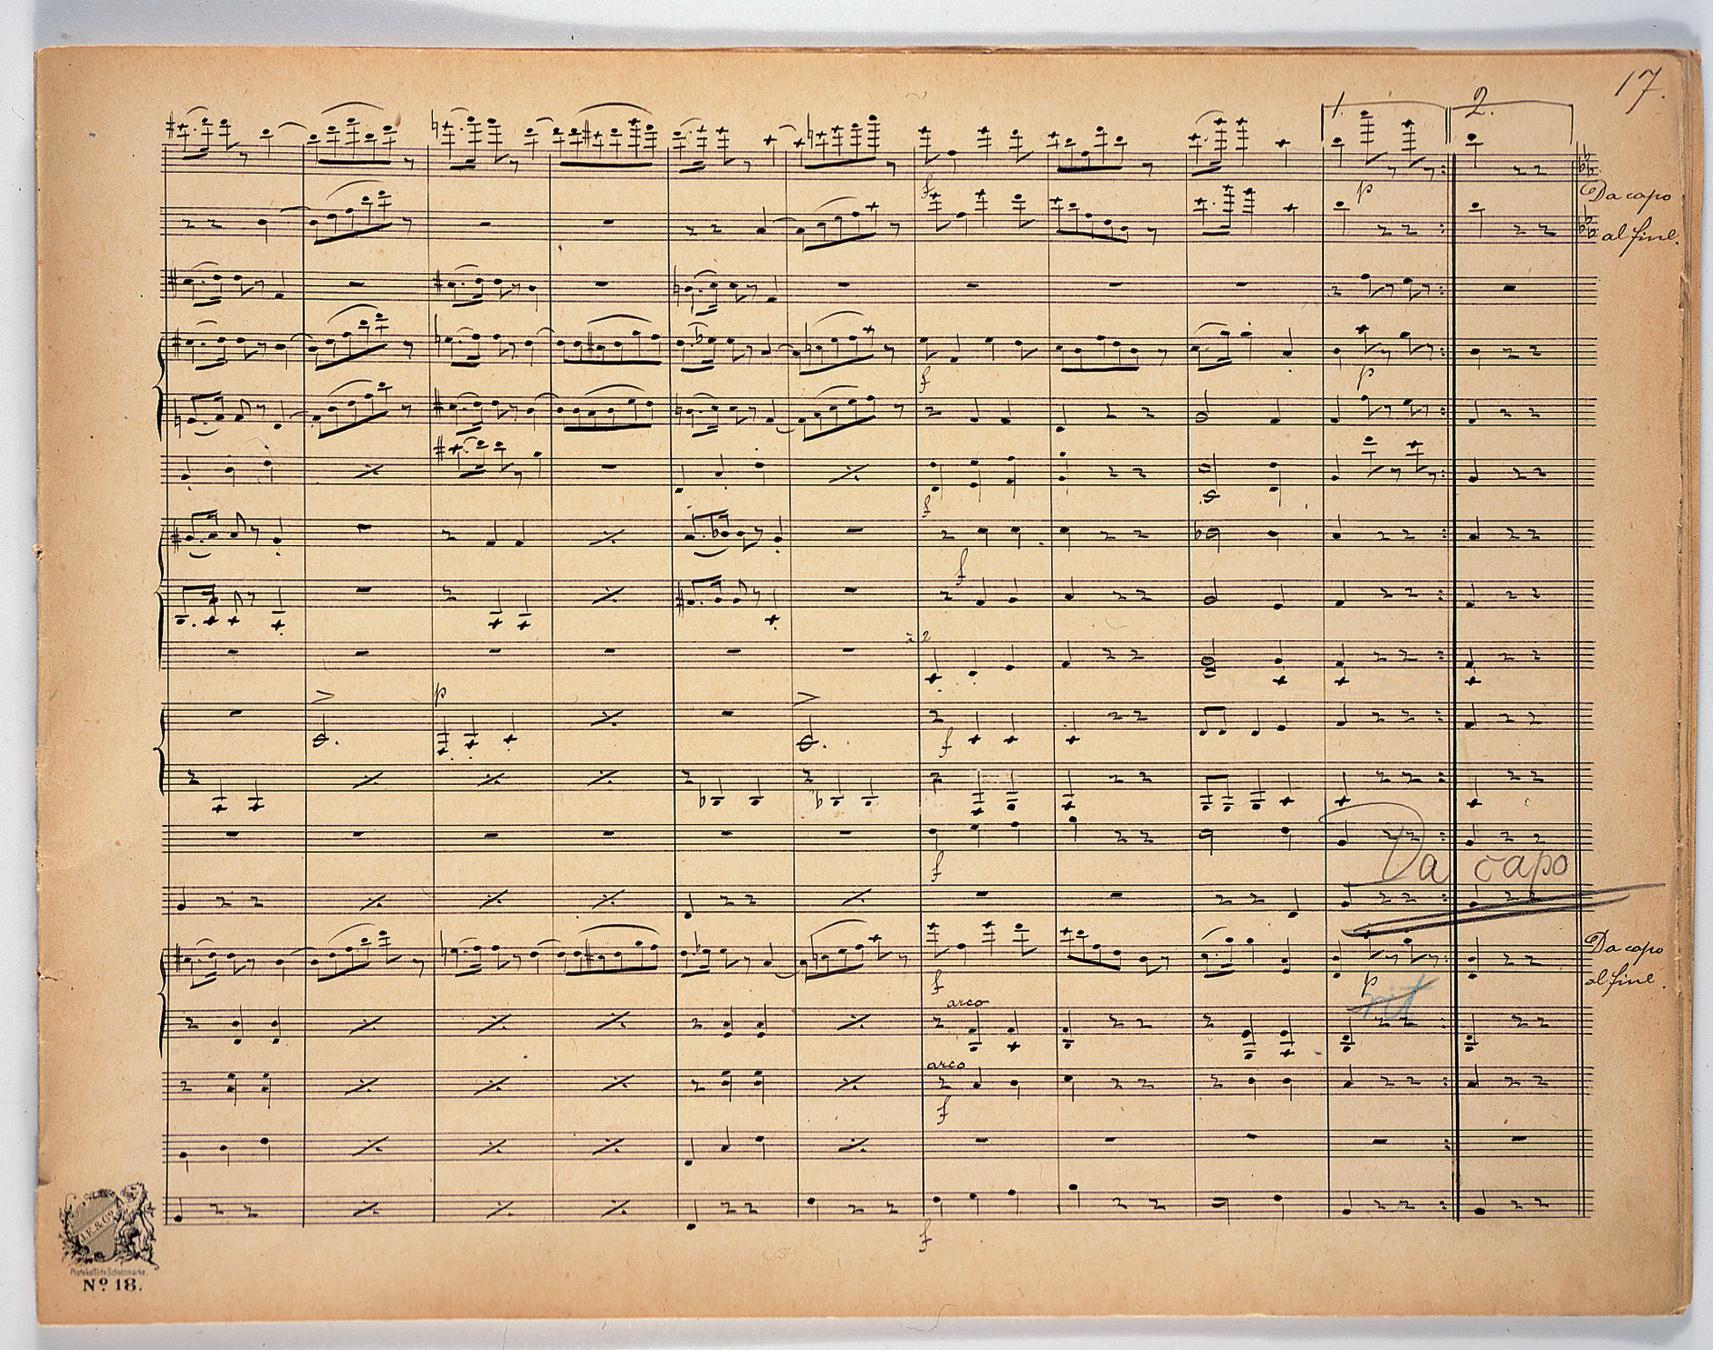 17.
1. 2.
p
f
Da capo
al fine.
f
p
f
f
à 2
p
f
f
Da capo
f
Da capo
al fine.
p
rit
arco
arco
f
f
J.E. & Co.
Protokollirte Schutzmarke.
No. 18.